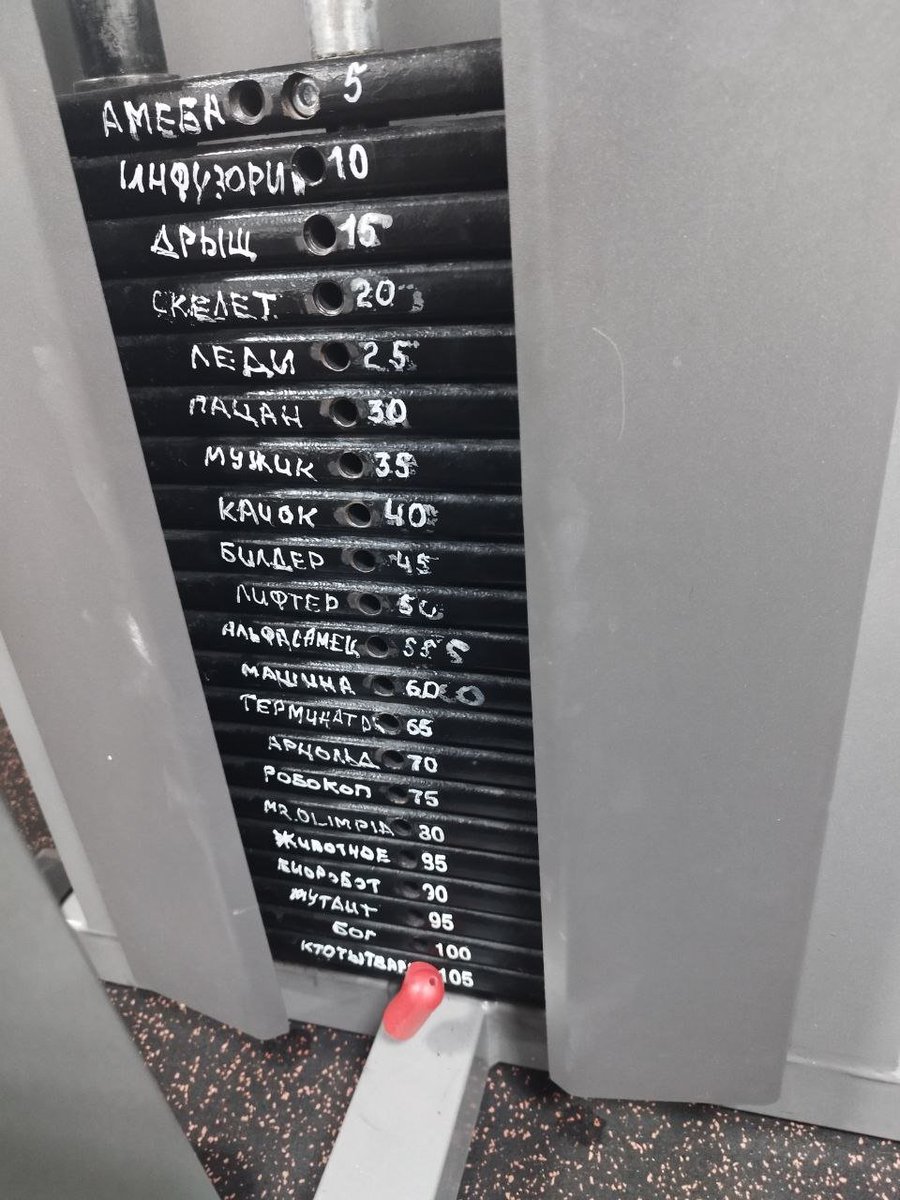 АМЕБА 5
ИНФУЗОРИЯ 10
ДРЫЩ 15
СКЕЛЕТ 20
ЛЕДИ 25
ПАЦАН 30
МУЖИК 35
КАЧОК 40
БИЛДЕР 45
ЛИФТЕР 50
АЛЬФАСАМЕЦ 55 5
МАШИНА 60 0
ТЕРМИНАТО 65
АРНОЛЬД 70
РОБОКОП 75
MR.OLIMPIA 80
ЖИВОТНОЕ 85
БИОРОБОТ 90
МУТАНТ 95
БОГ 100
КТОТЫТВАРЬ 105